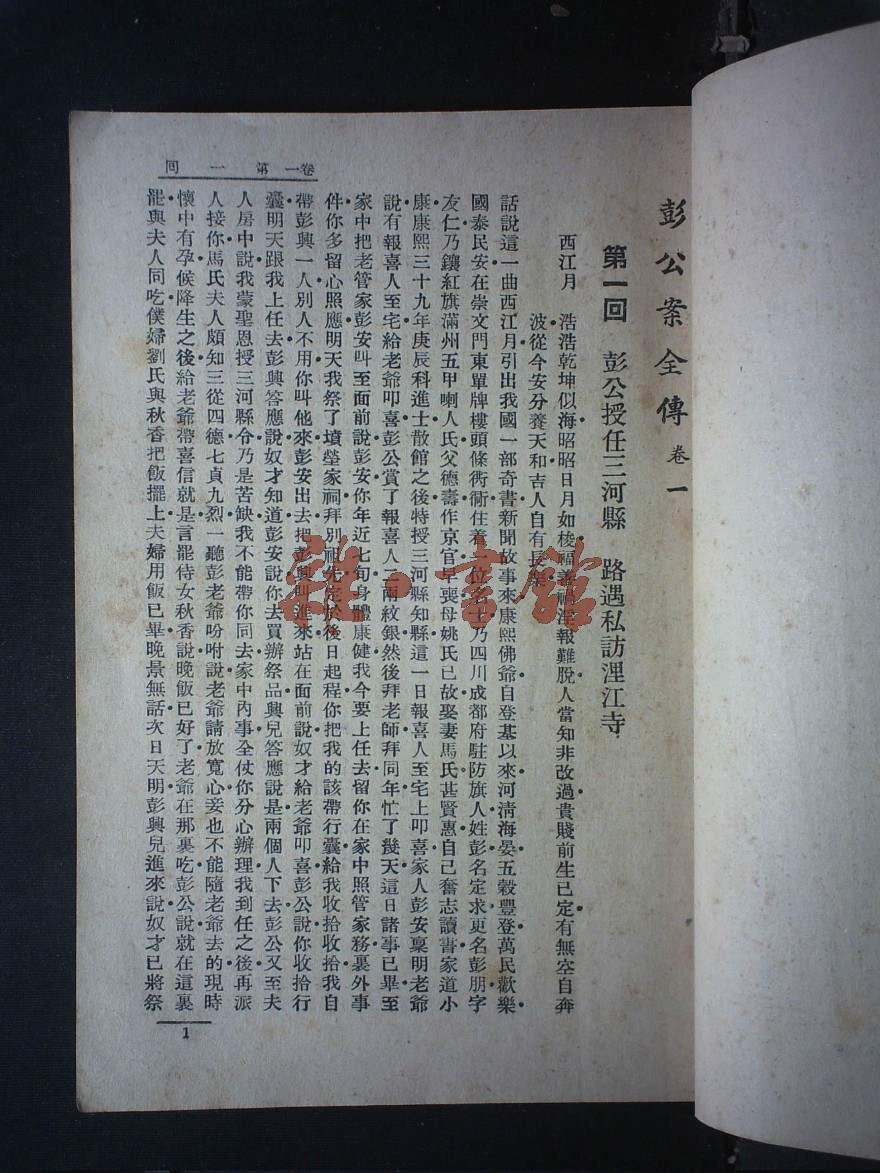 彭公案全傳 卷一
第一回 彭公授任三河縣 路遇私訪浬江寺
西江月 浩浩乾坤似海昭昭日月如梭福善禍淫報難脫人當知非改過貴賤前生已定有無空自奔
波從今安分養天和吉人自有長
話說這一曲西江月引出我國一部奇書新聞故事來康熙佛爺自登基以來河淸海晏五穀豐登萬民歡樂
國泰民安在崇文門東單牌樓頭條衚衕住着一位名士乃四川成都府駐防旗人姓彭名定求更名彭朋字
友仁乃鑲紅旗滿州五甲喇人氏父德壽作京官早喪母姚氏已故娶妻馬氏甚賢惠自己奮志讀書家道小
康康熙三十九年庚辰科進士散館之後特授三河縣知縣這一日報喜人至宅上叩喜家人彭安稟明老爺
說有報喜人至宅給老爺叩喜彭公賞了報喜人二兩紋銀然後拜老師拜同年忙了幾天這日諸事已畢至
家中把老管家彭安叫至面前說彭安你年近七旬身體康健我今要上任去留你在家中照管家務裏外事
件你多留心照應明天我祭了墳塋家祠拜別祖先定於後日起程你把我的該帶行囊給我收拾收拾我自
帶彭興一人別人不用你叫他來彭安出去把彭興叫進來站在面前說奴才給老爺叩喜彭公說你收拾行
囊明天跟我上任去彭興答應說奴才知道彭安說你去買辦祭品興兒答應說是兩個人下去彭公又至夫
人房中說我蒙聖恩授三河縣令乃是苦缺我不能帶你同去家中內事全仗你分心辦理我到任之後再派
人接你馬氏夫人頗知三從四德七貞九烈一聽彭老爺吩咐說老爺請放寬心妾也不能隨老爺去的現時
懷中有孕候降生之後給老爺帶喜信就是言罷侍女秋香說晚飯已好了老爺在那裏吃彭公說就在這裏
罷與夫人同吃僕婦劉氏與秋香把飯擺上夫婦用飯已畢晚景無話次日天明彭興兒進來說奴才已將祭
卷一 第一回
1
雜·書館